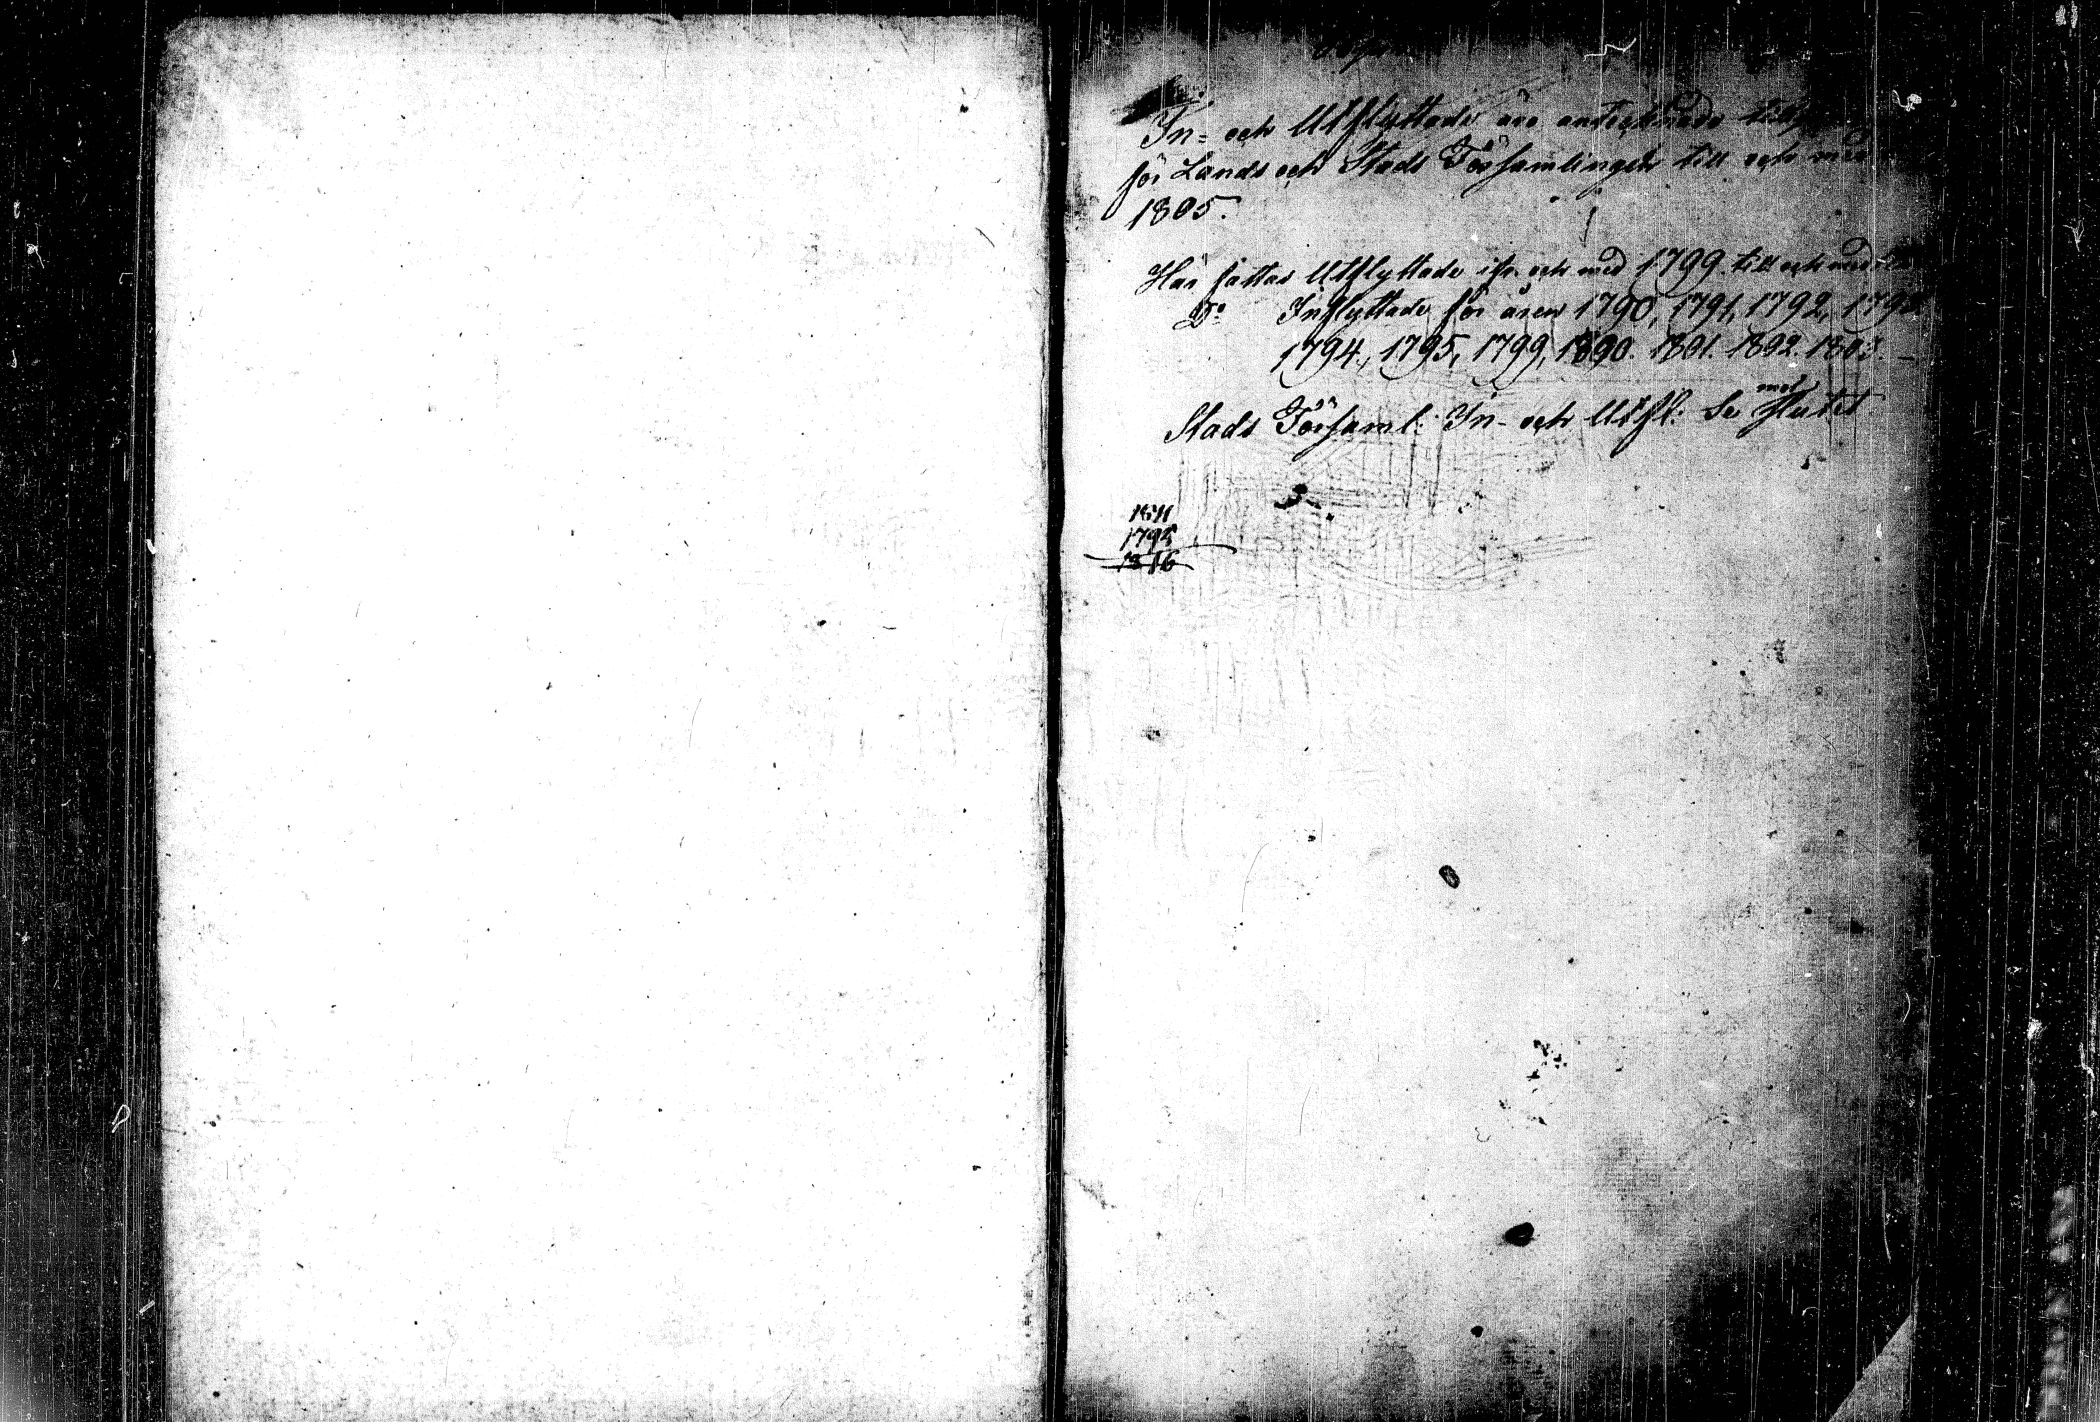 In- och Utflyttade äro antecknade
för Lands och Stads Församlingen till och med
1805.
Här fattas Utflyttade ifr. och med 1799 till och med
Do Inflyttade för åren 1790, 1791, 1792, 1793
1794, 1795, 1799, 1800. 1801. 1802. 1803. –
Stads Församl: In- och Utfl: Se mot slutet.
1811
1795
1816